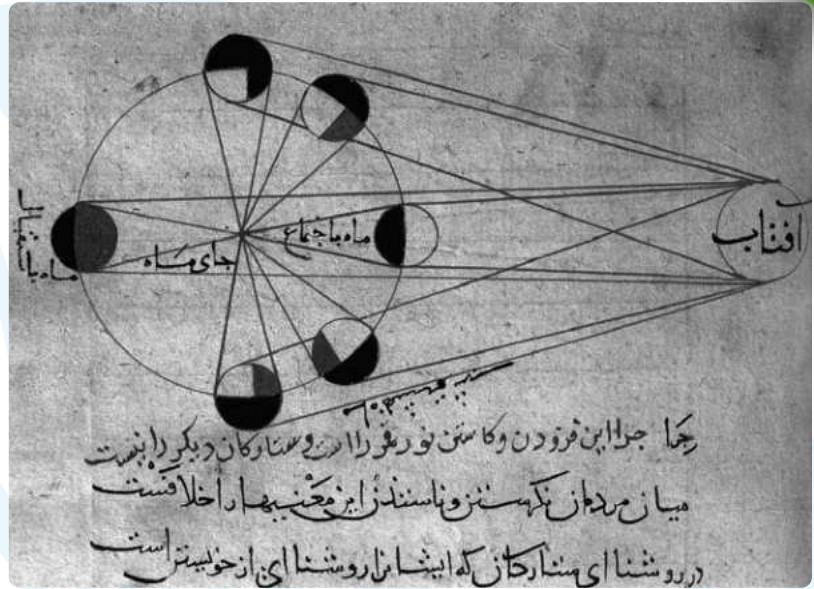 افتاب
ماه باجتماع
جای ماه
ماه باستقبال
چرا این فزودن و کاستن نور قمر را است و ستارکان دیکر را نیست
میان مردمان نکهستن و ناسندن این معنیها را خلافست
در روشنا ای ستارکان که ایشانرا روشنا ای از خویشتن است